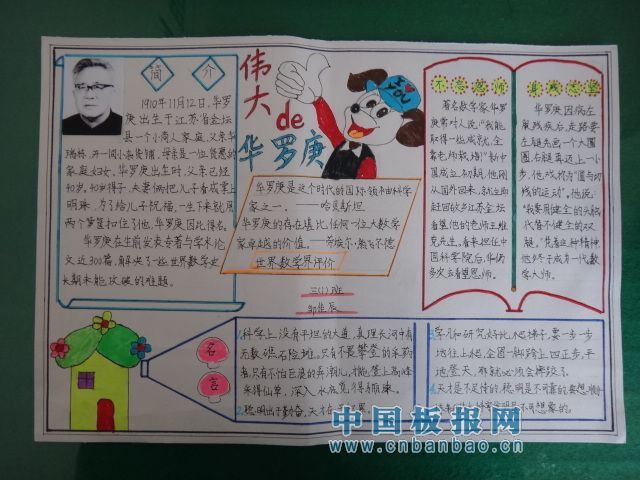 简介
1910年11月12日,华罗
庚出生于江苏省金坛
县一个小商人家庭,父亲华
瑞栋,开一间小杂货铺,母亲是一位贤惠的
家庭妇女。华罗庚出生时,父亲已经
40岁,40岁得子,夫妻俩把儿子看成掌上
明珠,为了给儿子祝福,一生下来就用
两个箩筐扣住了他,华罗庚因此得名。
华罗庚在生前发表专著与学术论
文近300篇,解决了一些世界数学史
长期未能攻破的难题。
伟大de
华罗庚
I
YOU
华罗庚是这个时代的国际领袖科学
家之一。——哈贝斯坦
华罗庚的存在堪比任何一位大数学
家卓越的价值。——劳埃尔·熊飞尔德
世界数学界评价
三(1)班
邹佳辰
不忘恩师
著名数学家华罗
庚常对人说:“我能
取得一些成就,全
靠老师栽培!”新中
国成立初期,他刚
从国外回来,就立即
赶回故乡江苏金坛
看望他的老师王维
克先生。后来担任中
国科学院后,华仍
多次去看望恩师。
身残志坚
华罗庚因病左
腿残疾后,走路要
左腿先画一个大圆
圈,右腿再迈上一小
步,他戏称为“圆与切
线的运动”。他说:
“我要用健全的头脑
代替不健全的双
腿。”凭着这种精神,
他终于成为一代数
学大师。
名言
1.科学上没有平坦的大道,真理长河中有
无数礁石险滩。只有不畏攀登的采药
者,只有不怕巨浪的弄潮儿,才能登上高峰
采得仙草,深入水底觅得骊珠。
2.聪明出于勤奋,天才在
3.学习和研究好比爬梯子,要一步一步
地往上爬,企图一脚跨上四五步,平
地登天,那就必须会摔跤了。
4.天才是不足恃的,聪明是不可靠的,要想顺手
不可想象的。
中国板报网
www.cnbanbao.cn